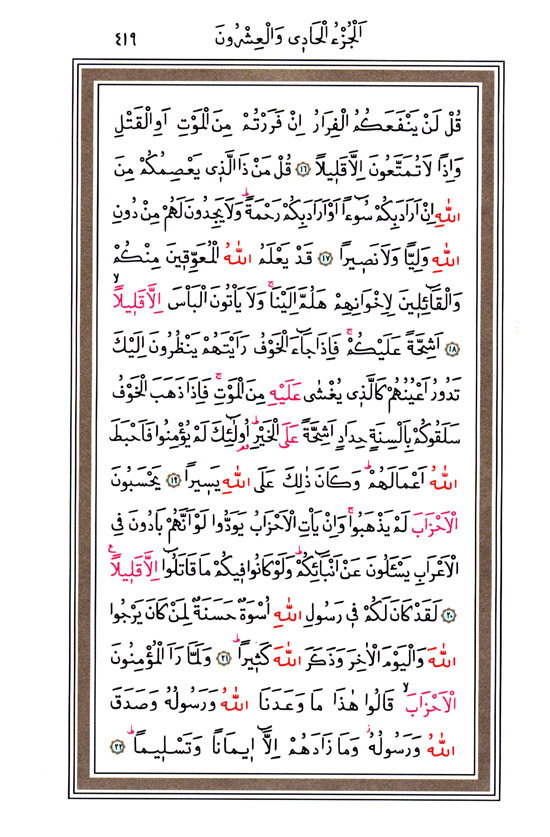 اَلْجُزْءُ الْحَادِى وَالْعِشْرُونَ ٤١٩
قُلْ لَنْ يَنْفَعَكُمُ الْفِرَارُ اِنْ فَرَرْتُمْ مِنَ الْمَوْتِ اَوِ الْقَتْلِ
وَاِذًا لَا تُمَتَّعُونَ اِلَّا قَلٖيلًا ﴿١٦﴾ قُلْ مَنْ ذَا الَّذٖى يَعْصِمُكُمْ مِنَ
اللّٰهِ اِنْ اَرَادَ بِكُمْ سُٓوءًا اَوْ اَرَادَ بِكُمْ رَحْمَةًؕ وَلَا يَجِدُونَ لَهُمْ مِنْ دُونِ
اللّٰهِ وَلِيًّا وَلَا نَصٖيرًا ﴿١٧﴾ قَدْ يَعْلَمُ اللّٰهُ الْمُعَوِّقٖينَ مِنْكُمْ
وَالْقَٓائِلٖينَ لِاِخْوَانِهِمْ هَلُمَّ اِلَيْنَاۚ وَلَا يَاْتُونَ الْبَاْسَ اِلَّا قَلٖيلًاۙ
﴿١٨﴾ اَشِحَّةً عَلَيْكُمْۚ فَاِذَا جَٓاءَ الْخَوْفُ رَاَيْتَهُمْ يَنْظُرُونَ اِلَيْكَ
تَدُورُ اَعْيُنُهُمْ كَالَّذٖى يُغْشٰى عَلَيْهِ مِنَ الْمَوْتِۚ فَاِذَا ذَهَبَ الْخَوْفُ
سَلَقُوكُمْ بِاَلْسِنَةٍ حِدَادٍ اَشِحَّةً عَلَى الْخَيْرِؕ اُو۬لٰٓئِكَ لَمْ يُؤْمِنُوا فَاَحْبَطَ
اللّٰهُ اَعْمَالَهُمْؕ وَكَانَ ذٰلِكَ عَلَى اللّٰهِ يَسٖيرًا ﴿١٩﴾ يَحْسَبُونَ
الْاَحْزَابَ لَمْ يَذْهَبُواۚ وَاِنْ يَاْتِ الْاَحْزَابُ يَوَدُّوا لَوْ اَنَّهُمْ بَادُونَ فِى
الْاَعْرَابِ يَسْپَلُونَ عَنْ اَنْـبَٓائِكُمْؕ وَلَوْ كَانُوا فٖيكُمْ مَا قَاتَلُٓوا اِلَّا قَلٖيلًاࣖ
﴿٢٠﴾ لَقَدْ كَانَ لَكُمْ فٖى رَسُولِ اللّٰهِ اُسْوَةٌ حَسَنَةٌ لِمَنْ كَانَ يَرْجُوا
اللّٰهَ وَالْيَوْمَ الْاٰخِرَ وَذَكَرَ اللّٰهَ كَثٖيرًاؕ ﴿٢١﴾ وَلَمَّا رَاَ الْمُؤْمِنُونَ
الْاَحْزَابَۙ قَالُوا هٰذَا مَا وَعَدَنَا اللّٰهُ وَرَسُولُهُ وَصَدَقَ
اللّٰهُ وَرَسُولُهُؗ وَمَا زَادَهُمْ اِلَّٓا اٖيمَانًا وَتَسْلٖيمًاؕ ﴿٢٢﴾